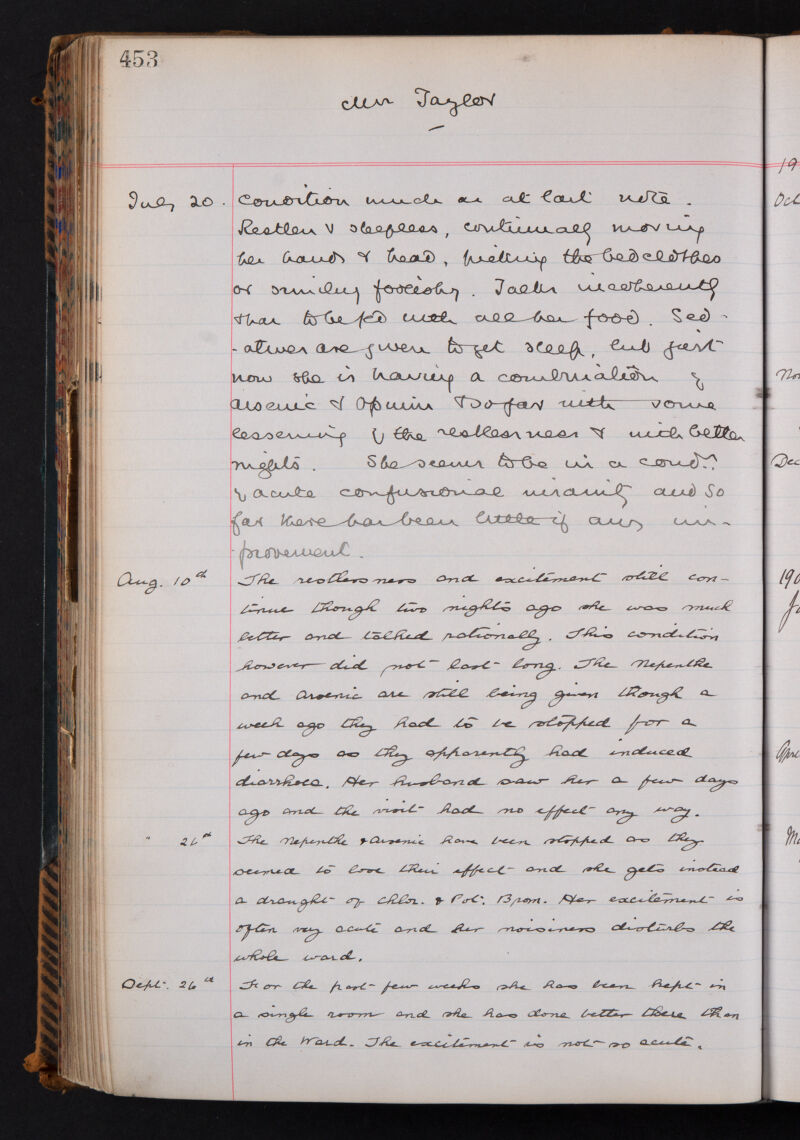 453
Mrs Taylor
July 20. Condition much as at last note.
Restless & sleepless, continually moving
her hands & head, picking the bedclothes
or smiling foolishly. Talks incoherently
& has to be fed with all her food. Sed-
-atives are given to get sleep, but just
now she is having a combination of
arsenic & Opium & so far with some
lessening of the restlessness & with better
nights. She seems to be in a condn.
of acute confusional insanity and so
far there has been little if any im-
-provement.
Aug. 10th The restlessness and excitement still con-
tinue though two nights ago she was much
better and talked rationally. This condition
however did not last long. The Nepenthe
and Arsenic are still being given though a
week ago they had to be stopped for a
few days as they apparently had induced
diarrhoea. Her husband saw her a few days
ago and the visit had no effect any way.
" The Nepenthe & Arsenic have been stopped as they
seemed to lose their effect and she gets instead
a draught of Chlor. & Pot. Brom. Her excitement is
often very acute and her noisiness disturbs the
whole ward.
Sept. 26th For the past few weeks she has been kept in
a single room and she has done better there than
in the Ward. The excitement is not so acute.
19
Oct
Nov
Dec
190
Apri